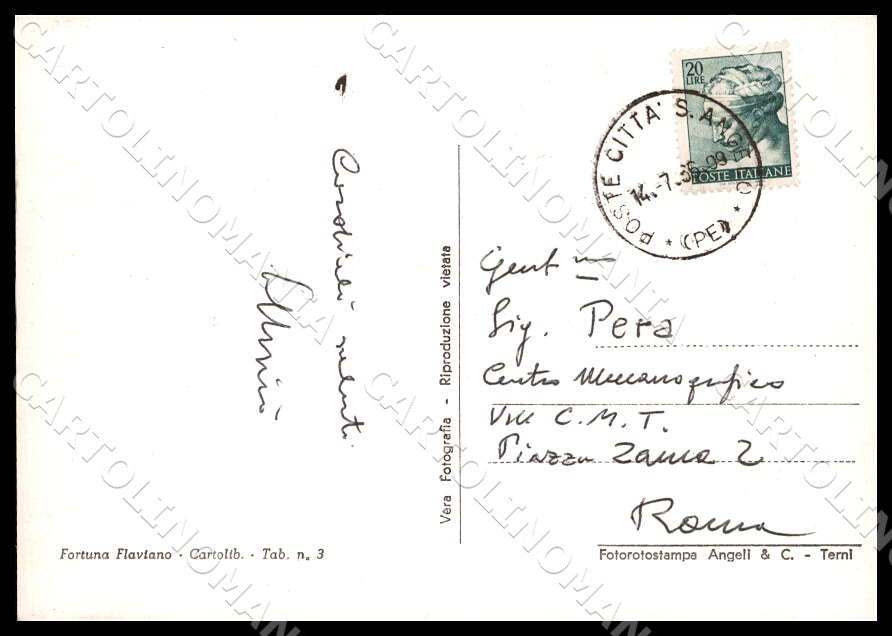 20
LIRE
POSTE ITALIANE
POSTE CITTA' S. ANGELO
14.-7.65.-99
(PE)
Cordiali saluti
Gent mo
Sig. Pera
Centro Meccanografico
VIII C.M.T.
Piazza Zama 2
Roma
Vera Fotografia - Riproduzione vietata
Fortuna Flaviano - Cartolib. - Tab. n. 3
Fotorotostampa Angeli & C. - Terni
CARTOLINOMANIA